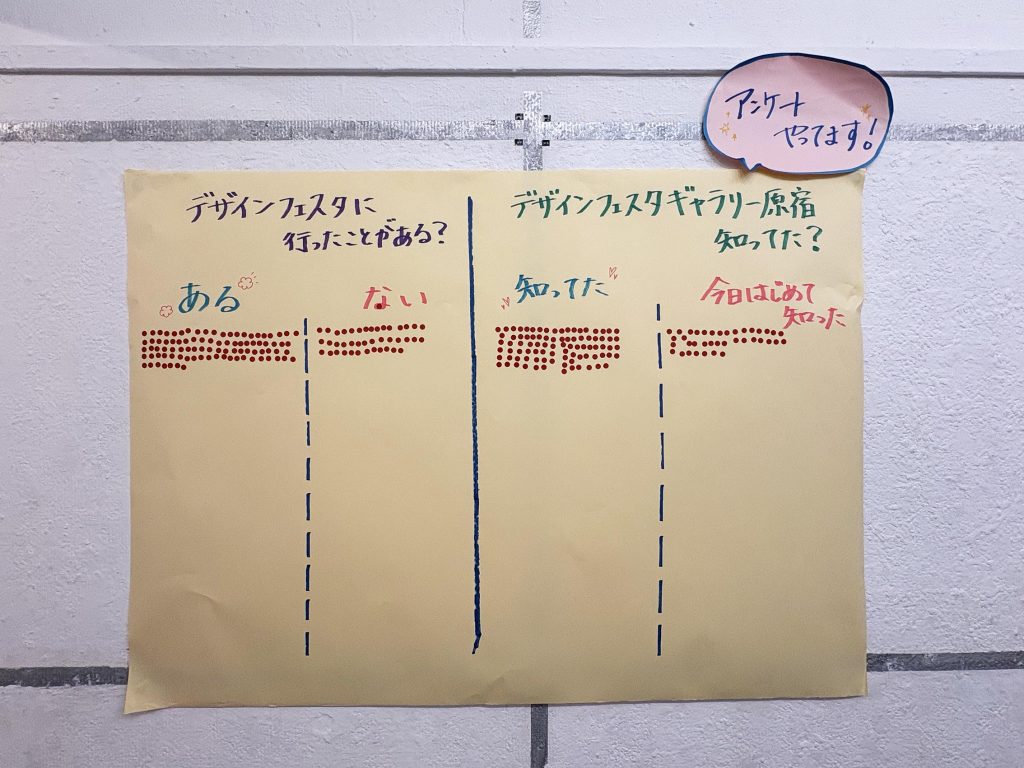 アンケート
やってます!
デザインフェスタに
行ったことがある?
ある
ない
デザインフェスタギャラリー原宿
知ってた?
知ってた
今日はじめて
知った